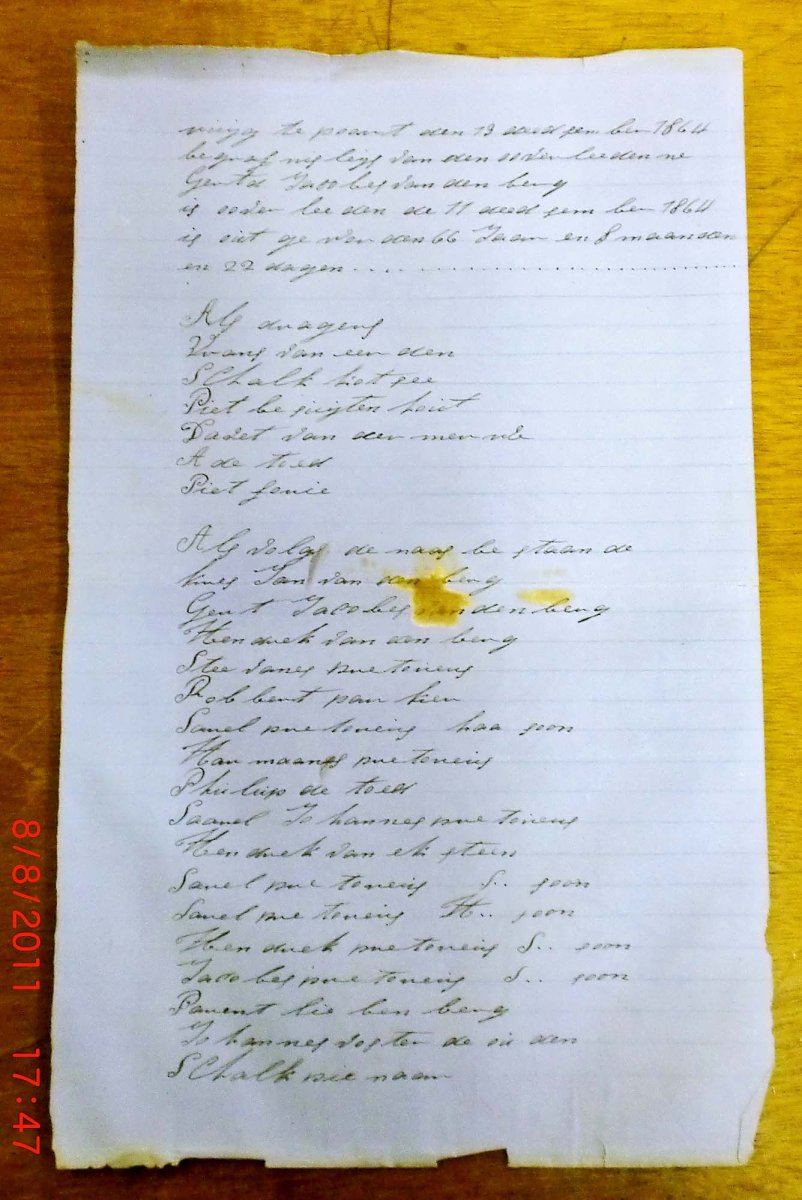 te den 13 deed sem ber 1864
be graf nis ligs van den ooder leeden ne
Gert Jacobes van den berg
is ooder lee den de 11 deed sem ber 1864
is out ge wor den 66 Jaar en 8 maanden
en 22 dagen
Als dragers
Frans van eer den
SChalk
Piet be suigten hout
Davet van der mer
A de toed
Piet
Als volgs de naas be staan de
Jan van den berg
Gert Jacobes van den berg
Hendrek van den berg
Stee vanes pretoreis
Robbert par ker
Savel pretoreis haa soon
Harmaanes pretoreis
Philiep de toed
Saavel Johannes pretoreis
Hendrek van ek steen
Savel pretoreis S.. soon
Savel pretoreis H.. soon
Hendrek pretoreis S.. soon
Jacobes pretoreis S.. soon
Parent lie ben berg
Johannes voster de ou den
SChalk pie naar
8/8/2011 17:47